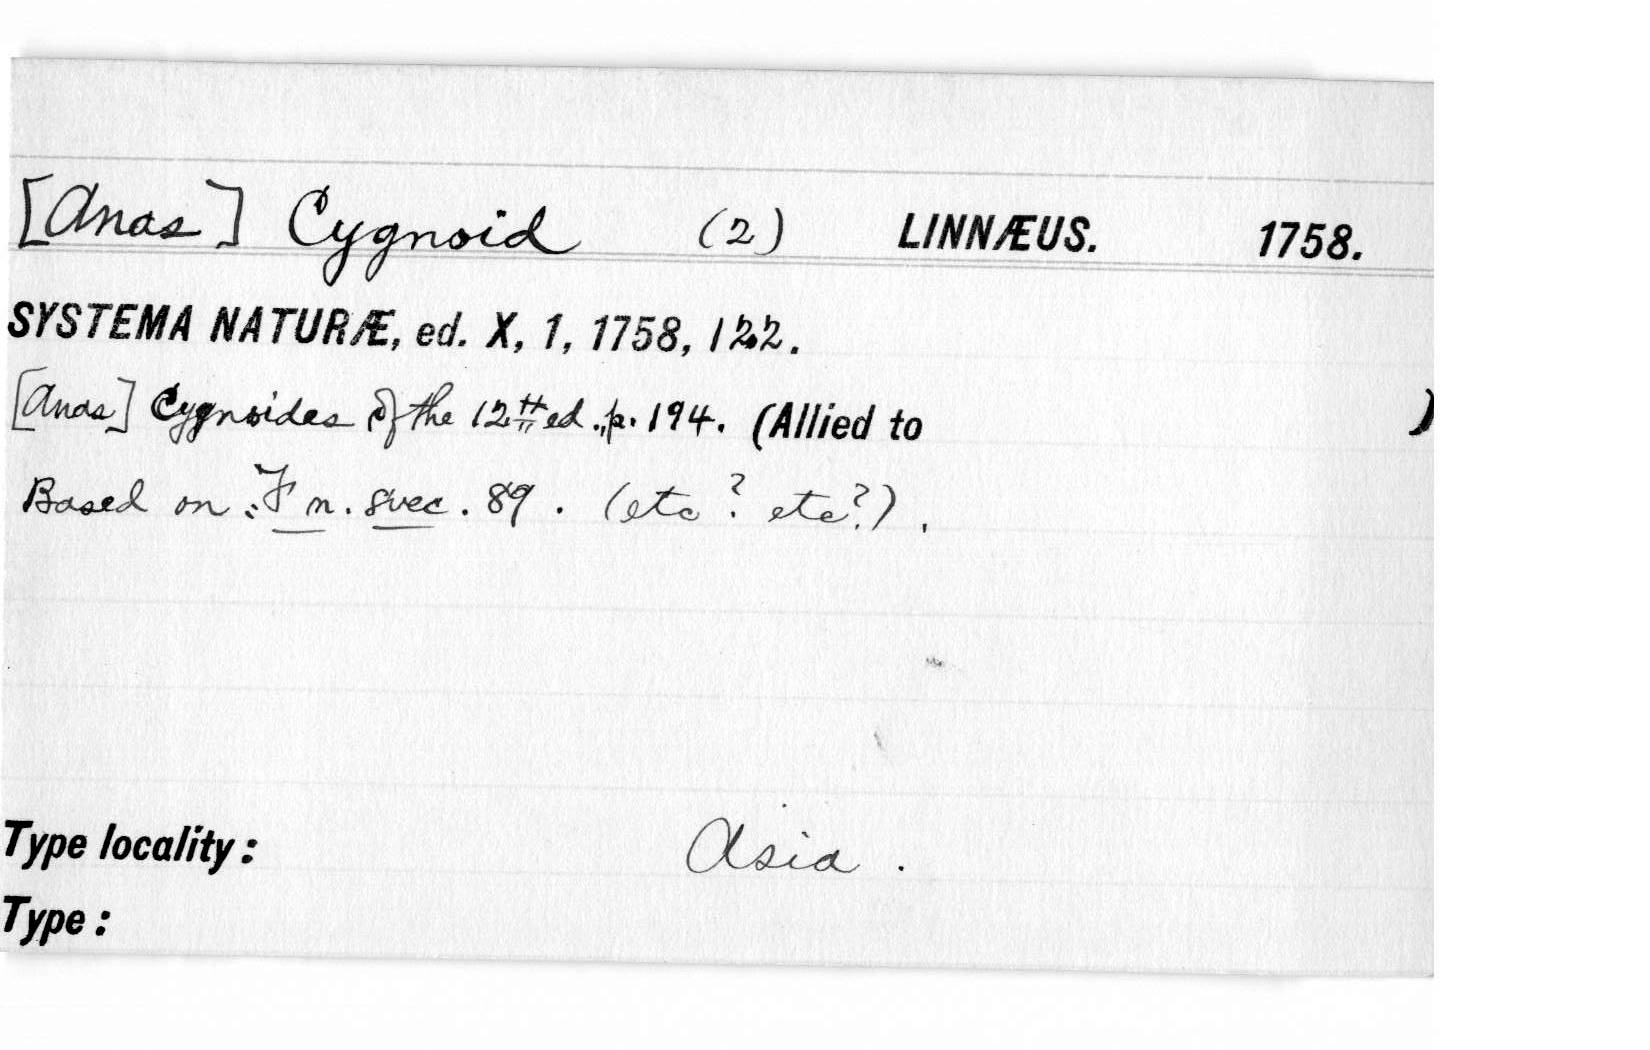 [Anas] Cygnoid (2) LINNÆUS. 1758.
SYSTEMA NATURÆ, ed. X, 1, 1758, 122.
[Anas] Cygnoides of the 12th ed., p. 194. (Allied to )
Based on: Fn. svec. 89. (etc? etc?).
Type locality: Asia.
Type: